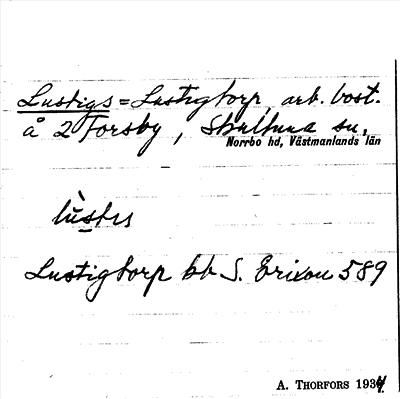 Lustigs = Lustigtorp, arb. bost.
å 2 Forsby, Skultuna sn,
Norrbo hd, Västmanlands län
lùstɩs
Lustigtorp bb S. Erixon 589
A. THORFORS 1934